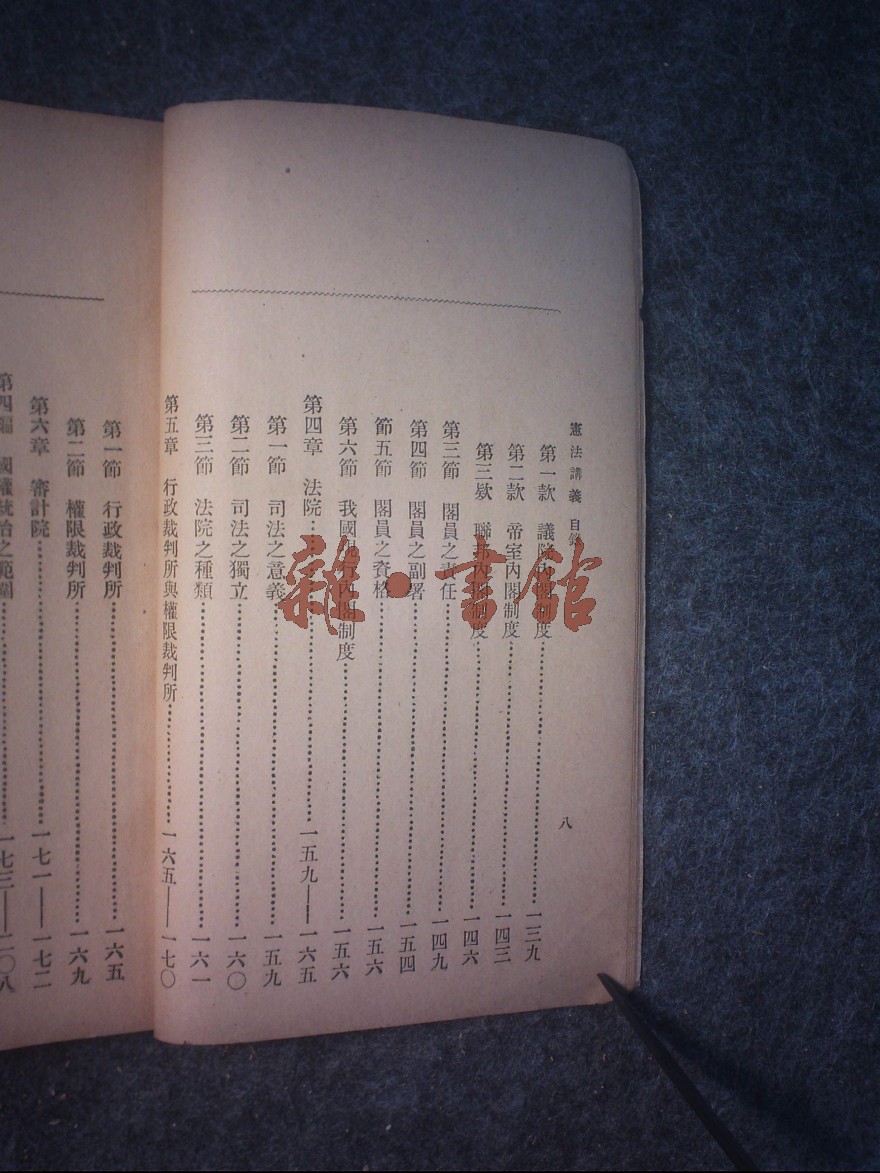 憲法講義 目錄
八
第一款 議院內閣制度……一三九
第二款 帝室內閣制度……一四三
第三欵 聯邦內閣制度……一四六
第三節 閣員之責任……一四九
第四節 閣員之副署……一五四
節五節 閣員之資格……一五六
第六節 我國現行內閣制度……一五六
第四章 法院……一五九——一六五
第一節 司法之意義……一五九
第二節 司法之獨立……一六〇
第三節 法院之種類……一六一
第五章 行政裁判所與權限裁判所……一六五——一七〇
第一節 行政裁判所……一六五
第二節 權限裁判所……一六九
第六章 審計院……一七一——一七二
第四編 國權統治之範圍……一七三——二〇八
雜·書館